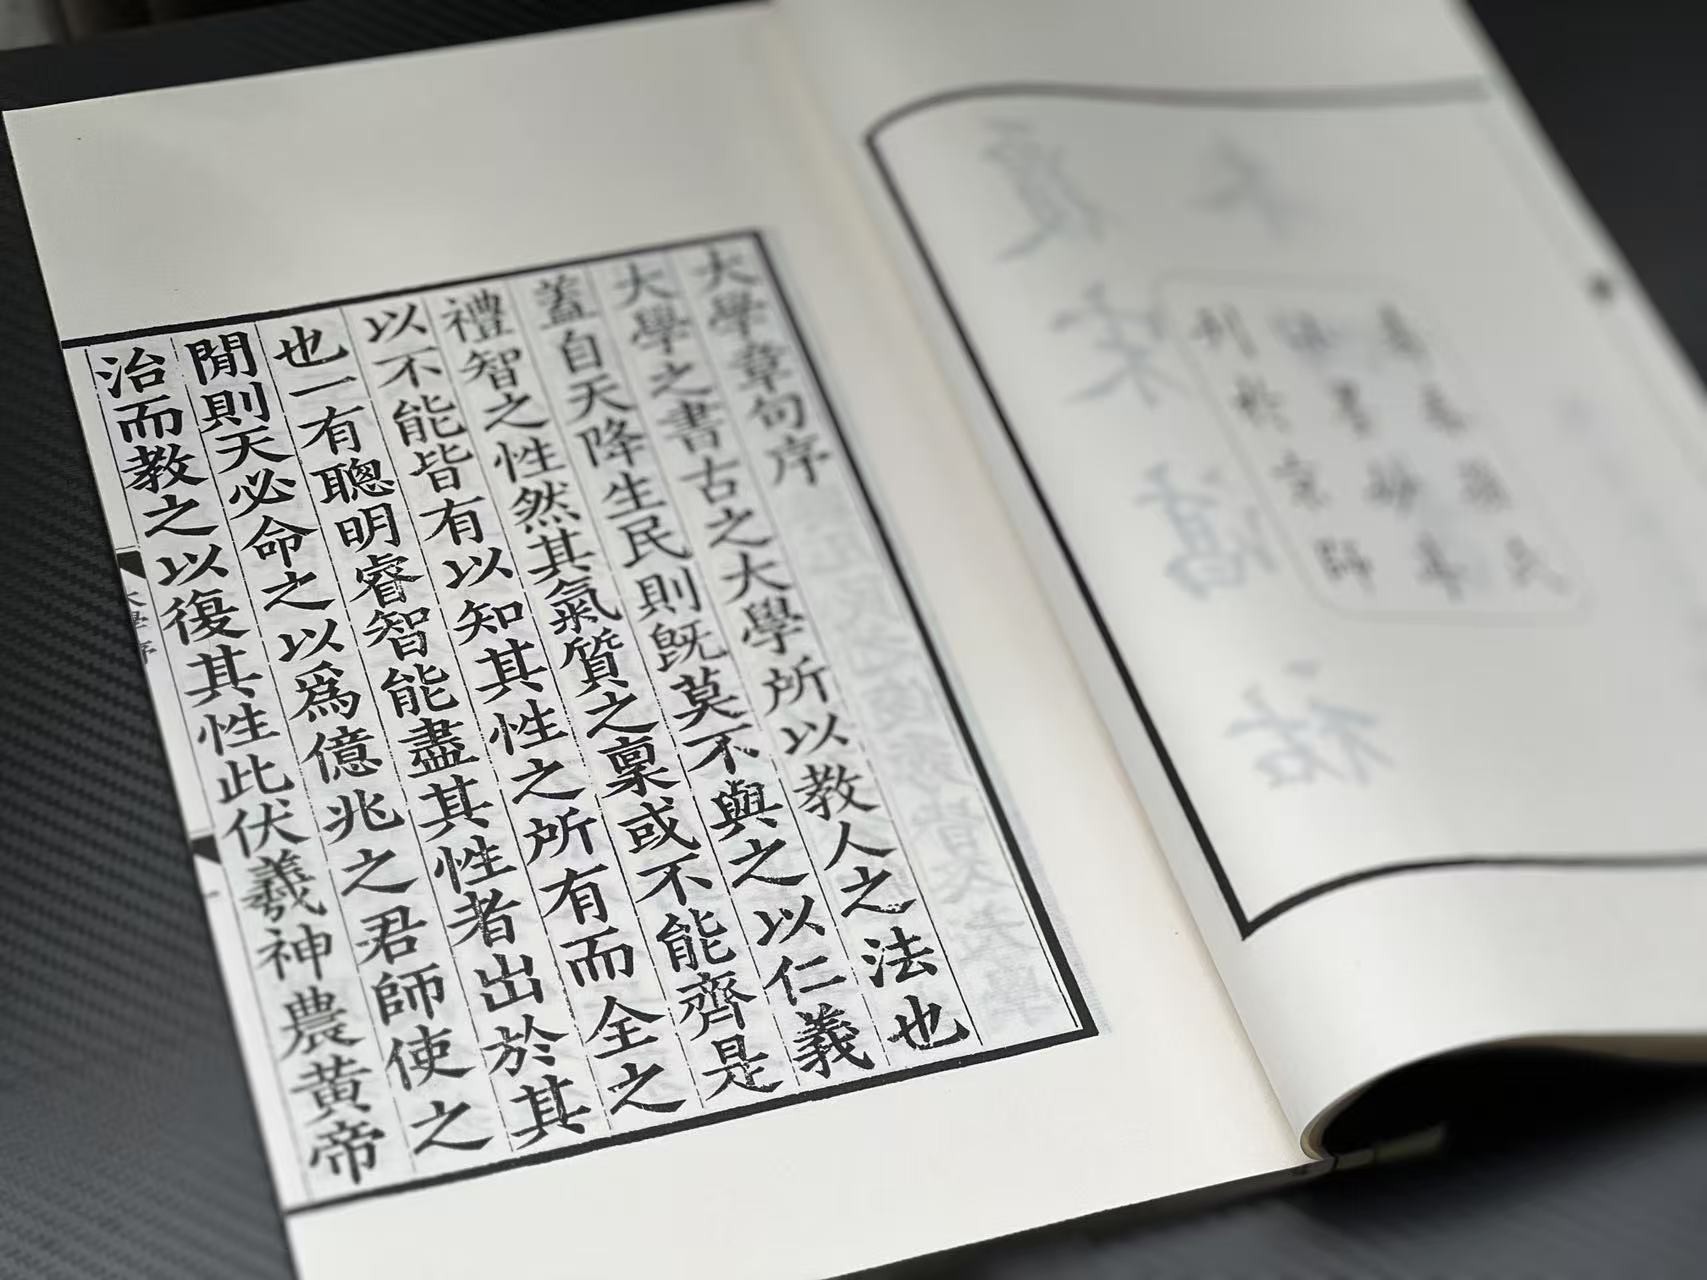 刊於京師
大學章句序
大學之書古之大學所以教人之法也
蓋自天降生民則既莫不與之以仁義
禮智之性然其氣質之稟或不能齊是
以不能皆有以知其性之所有而全之
也一有聰明睿智能盡其性者出於其
閒則天必命之以爲億兆之君師使之
治而教之以復其性此伏羲神農黃帝
大學序